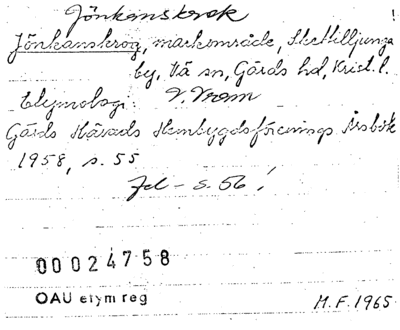 Jönkanskrok
!
Jönkanskrog, markområde, Skettilljunga
by, Vä sn, Gärds hd, Krist. l.
Etymologi: V. Vram
Gärds Härads Hembygdsförenings Årsbok
1958, s. 55
Jfl - s. 56!
00024758
OAU etym reg
M.F. 1965